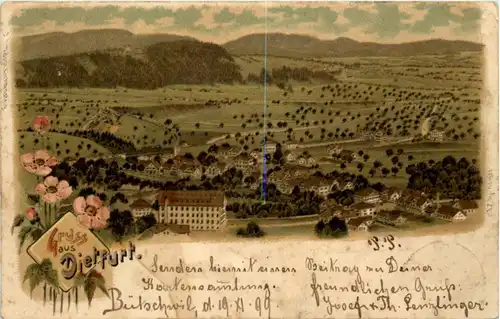 Gruss
aus
Dietfurt.
P. P.
Senden hiemit einen Beitrag zu Deiner
Kartensammlung. freundlichen Gruss:
Bütschwil, d. 19. XI. 99 Josef & Th.